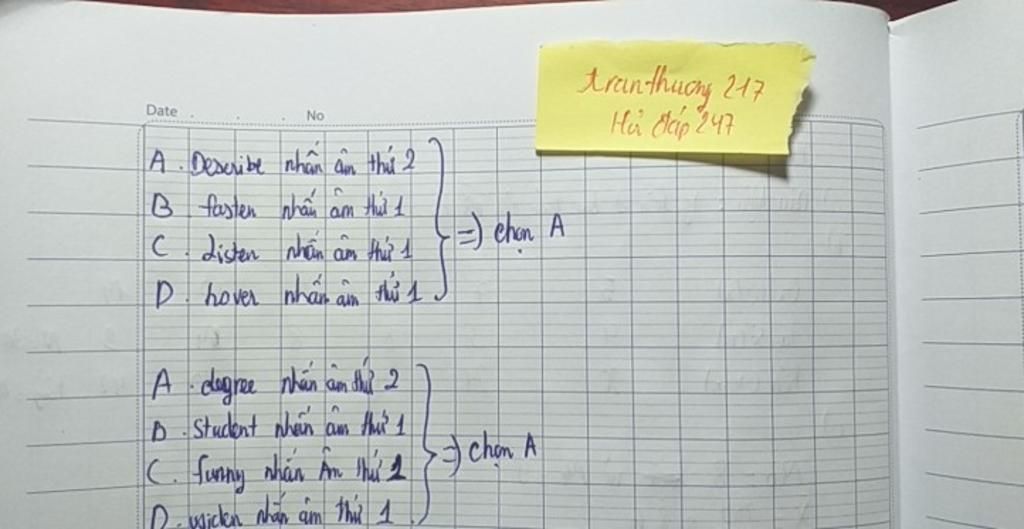 tranthuong 217
Hỏi đáp 247
Date . . . No
A . Describe nhấn âm thứ 2
B fasten nhấn âm thứ 1
C . Listen nhấn âm thứ 1
D . hover nhấn âm thứ 1
=) chọn A
A . degree nhấn âm thứ 2
B . Student nhấn âm thứ 1
C . funny nhấn Âm thứ 1
D . widen nhấn âm thứ 1
=) chọn A